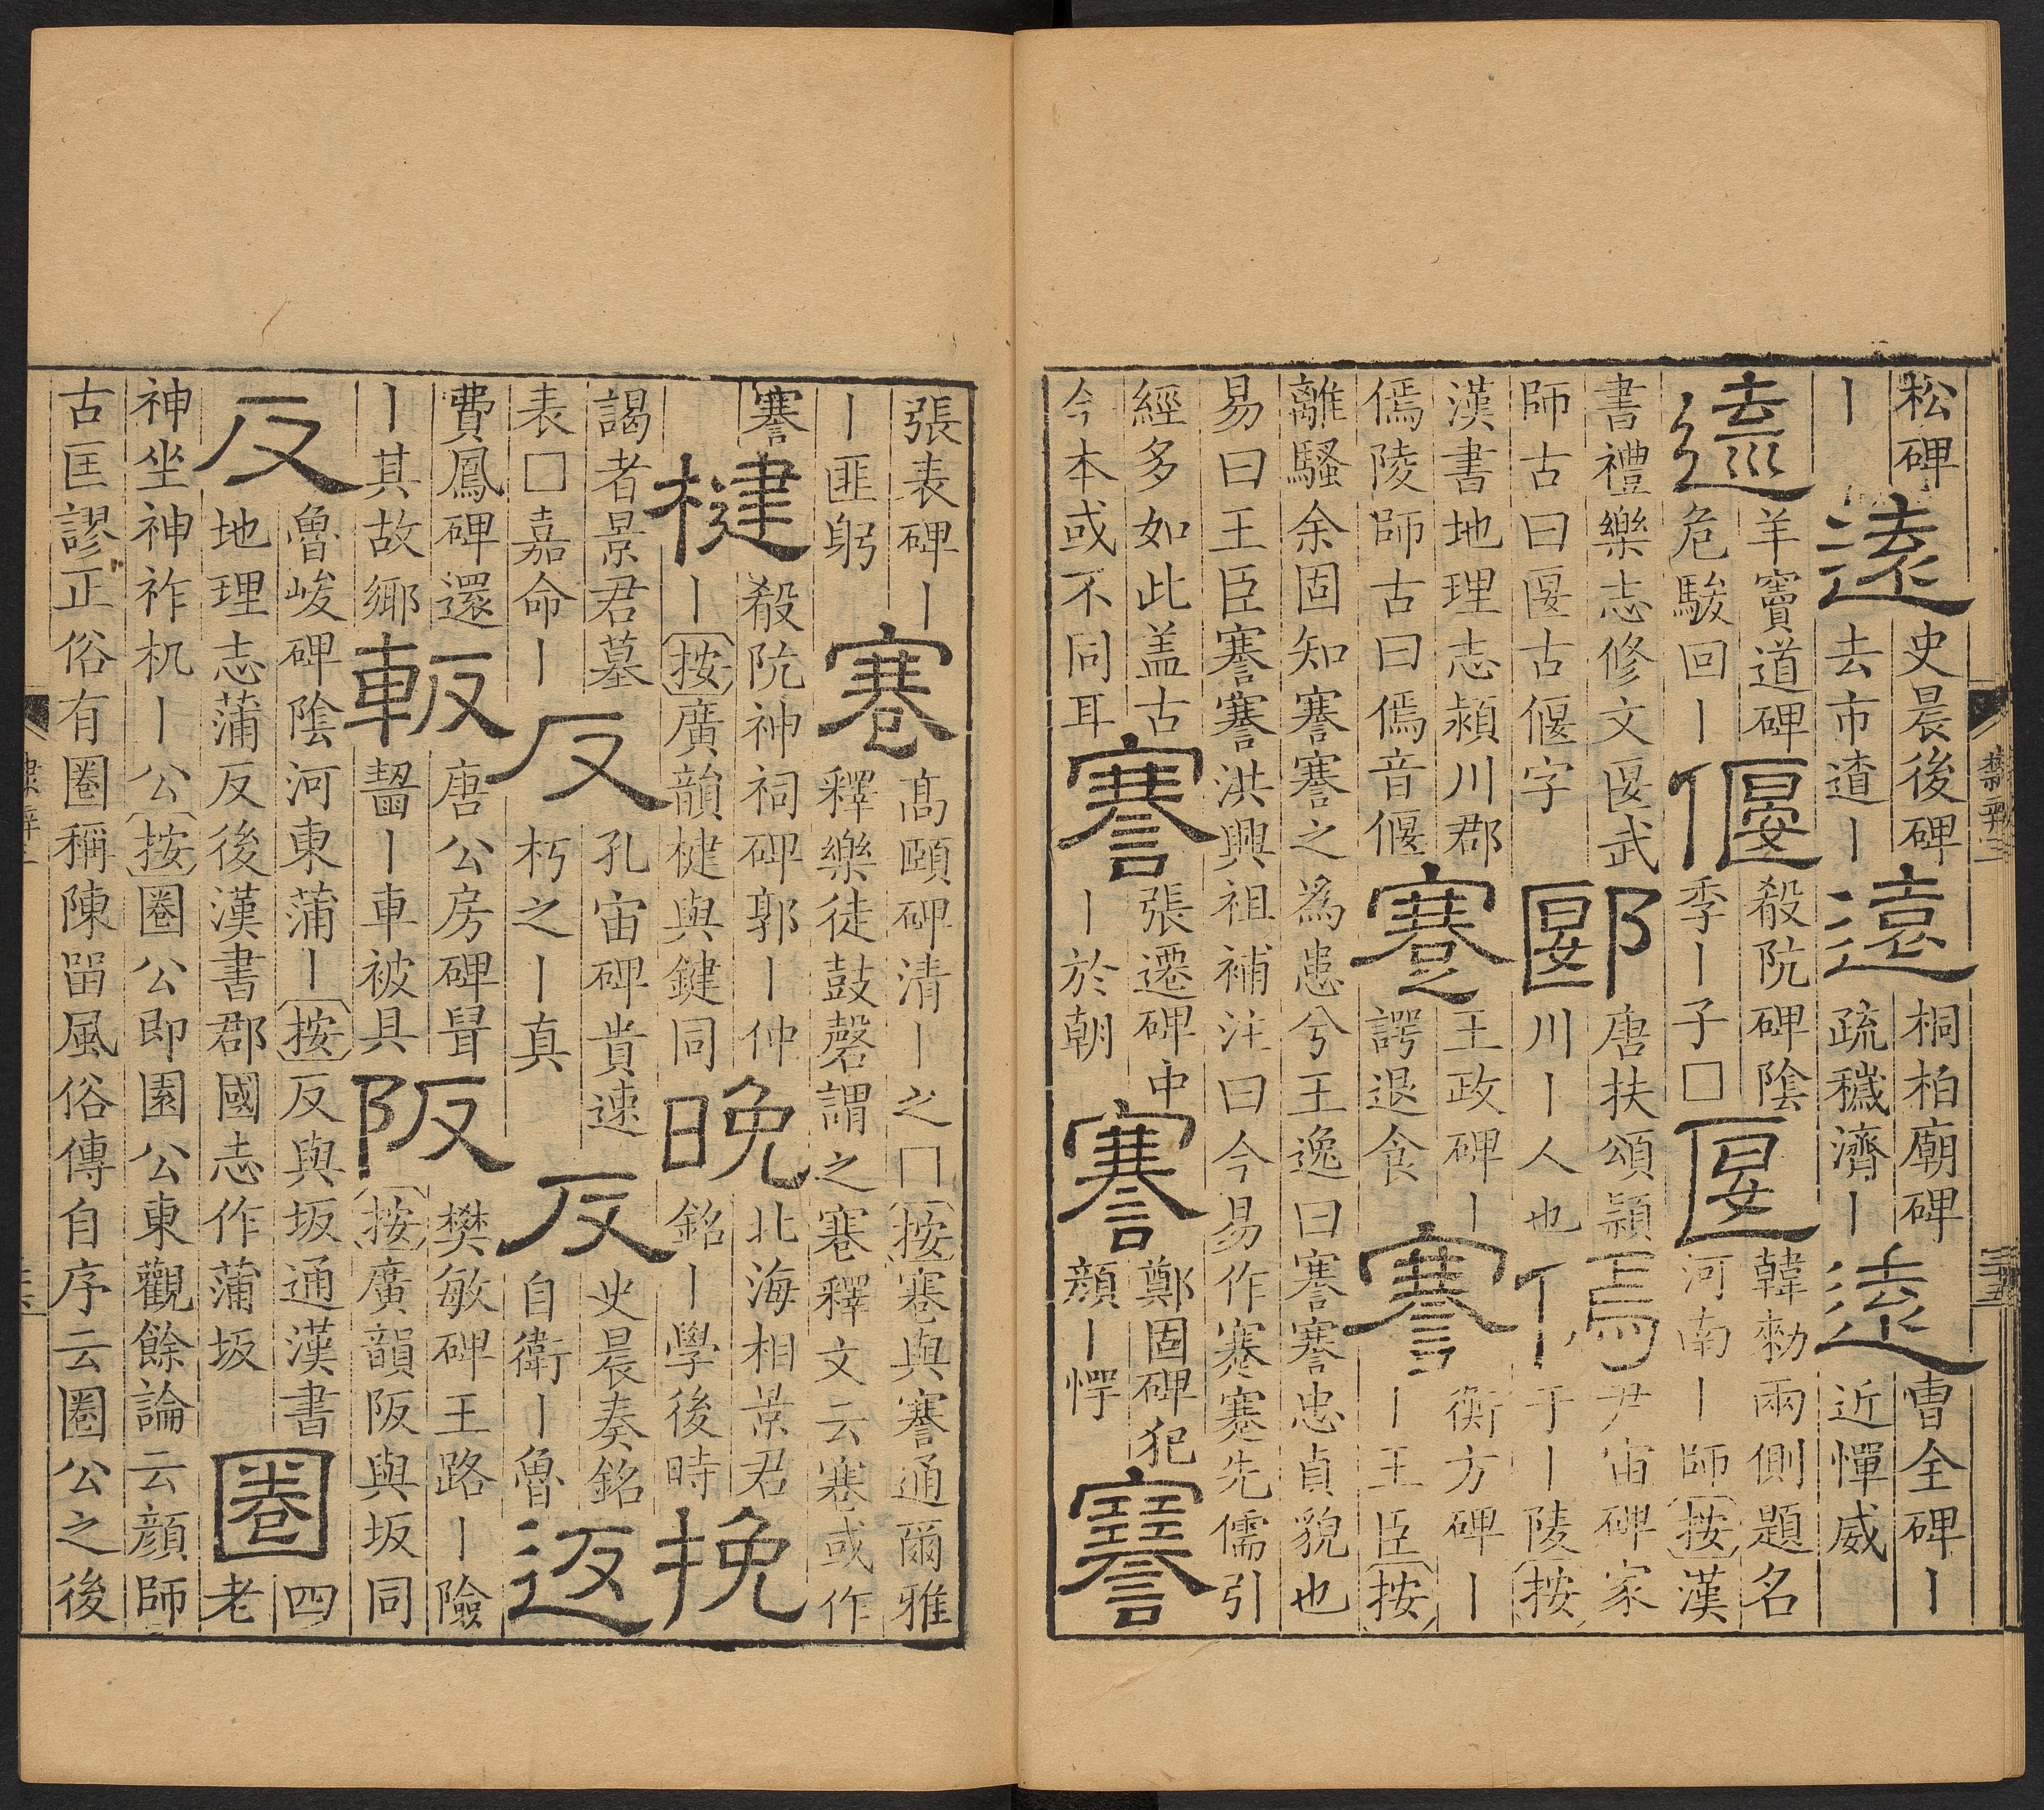 松碑
丨
遠
史晨後碑
去市遼丨
遠
桐柏廟碑
疏穢濟丨
遠
曹全碑丨
近憚威
羊竇道碑
危駿回丨
偃
殽阮碑陰
季丨子□
匽
韓勑兩側題名
河南丨師按漢
書禮樂志修文匽武
師古曰匽古偃字
郾
唐扶頌潁
川丨人也
傿
尹宙碑家
于丨陵按
漢書地理志潁川郡
傿陵師古曰傿音偃
蹇
王政碑丨
諤退食
謇
衡方碑丨
丨王臣按
離騷余固知謇謇之為患兮王逸曰謇謇忠貞貌也
易曰王臣謇謇洪興祖補注曰今易作蹇蹇先儒引
經多如此盖古
今本或不同耳
謇
張遷碑中
丨於朝
謇
鄭固碑犯
顏丨愕
謇
張表碑丨
丨匪躬
高頤碑清丨之□按寋與謇通爾雅
釋樂徒鼓磬謂之寋釋文云寋或作
謇
楗
殽阮神祠碑郭丨仲
丨按廣韻楗與鍵同
晚
北海相景君
銘丨學後時
挽
謁者景君墓
表□嘉命丨
反
孔宙碑貴速
朽之丨真
反
史晨奏銘
自衛丨魯
返
費鳳碑還
丨其故鄉
軬
唐公房碑鼠
齧丨車被具
阪
樊敏碑王路丨險
按廣韻阪與坂同
反
魯峻碑陰河東蒲丨按反與坂通漢書
地理志蒲反後漢書郡國志作蒲坂
圈
四
老
神坐神祚机丨公按圈公即園公東觀餘論云顏師
古匡謬正俗有圈稱陳留風俗傳自序云圈公之後